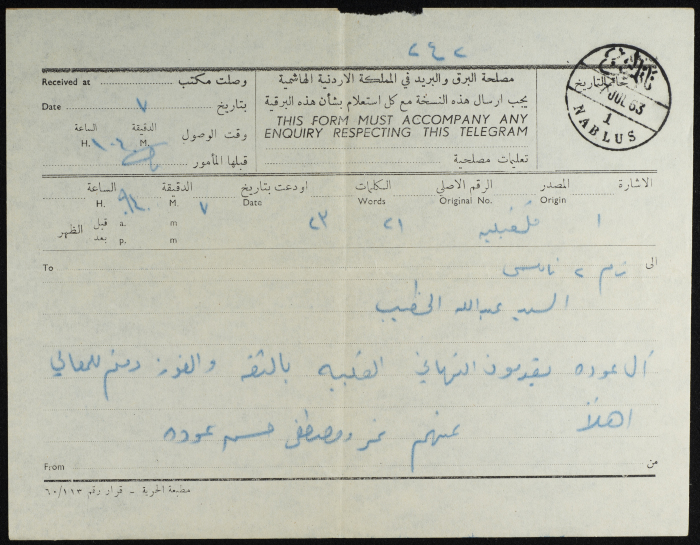 ٢٤٢
Received at وصلت مكتب
Date ٧ بتاريخ
الساعة الدقيقة
H. M. وقت الوصول
قبلها المأمور
مصلحة البرق والبريد في المملكة الاردنية الهاشمية
يجب ارسال هذه النسخة مع كل استعلام بشأن هذه البرقية
THIS FORM MUST ACCOMPANY ANY
ENQUIRY RESPECTING THIS TELEGRAM
تعليمات مصلحية
التاريخ
JUL 63
1
NABLUS
الاشارة المصدر الرقم الاصلي الكلمات اودعت بتاريخ الدقيقة الساعة
Origin Original No. Words Date M. H.
١ ٢١ ٢٣ ٧
a. m قبل
p. m بعد
الظهر
To الى
٢ نابلس
السيد عبدالله الخطيب
آل عوده يقدمون التهاني القلبيه بالثقه والفوز دمتم للمعالي
اهلاً
عنهم ومصطفى عوده
From من
مطبعة الحرية - قرار رقم ٦٠/١١٣